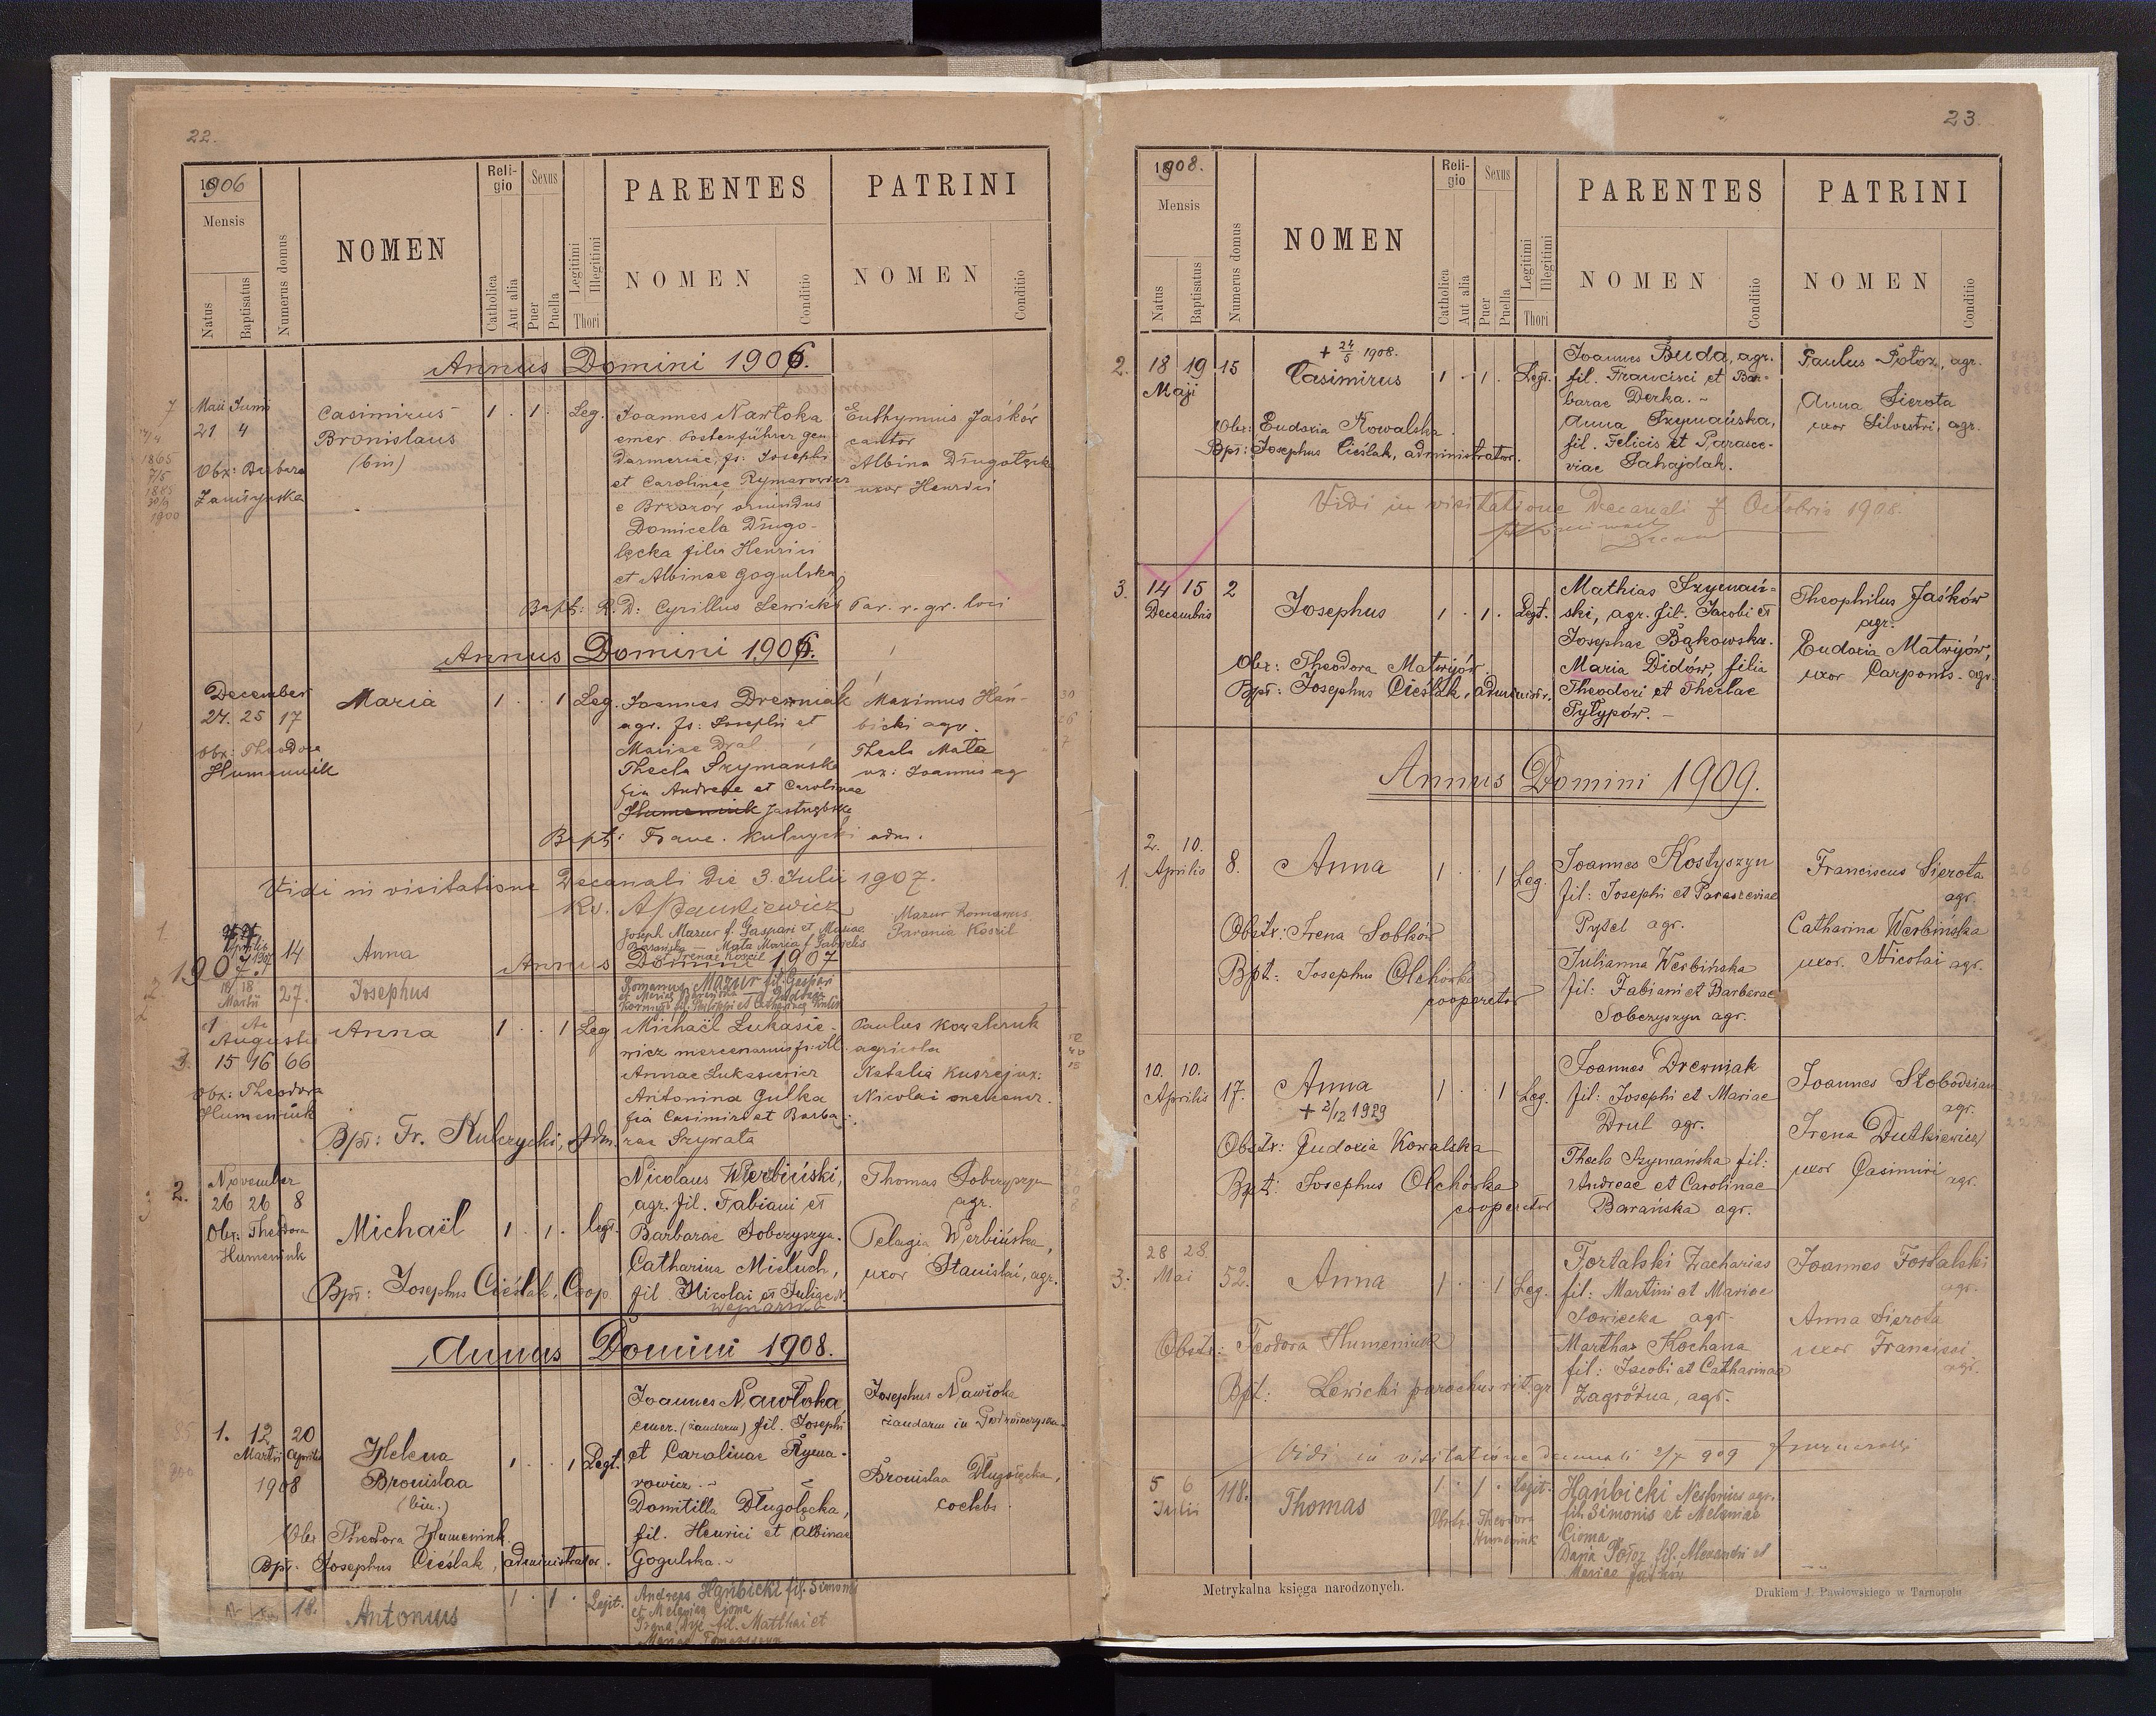 22.
1906
Mensis
Natus
Baptisatus
Numerus domus
NOMEN
Religio
Catholica
Aut alia
Sexus
Puer
Puella
Legitimi
Illegitimi
Thori
PARENTES
NOMEN
Conditio
PATRINI
NOMEN
Conditio
Annus Domini 1906.
Maii Junii
21 4
Obx: Barbara
Casimirus
Bronislaus
(bin)
1 . 1 . Leg.
Joannes Nawłoka
emer. Postenführer gen-
darmeriae, fs: Josephi
et Carolinae Rymarowicz
e Brzozów oriundus
Domicela Długo-
łęcka filia Henrici
et Albinae Gogulska
Euthymius Jaśków
cantor
Albina Długołęcka
uxor Henrici
Bapt: R. D: Cyrillus Lewicki Par. r. gr. loci
Annus Domini 1906.
December
24. 25 17
Obx: Theodora
Humeniuk
Maria
1 . . 1 Leg.
Joannes Drewniak
agr. fs: Josephi et
Mariae Dral
Thecla Szymańska
fia Andreae et Carolinae
Humeniuk Jastrzębska
Maximus Hań-
bicki agr.
Thecla Mała
ux: Joannis ag
Bapt: Franc. Kulczycki adm.
Vidi in visitatione Decanali die 3. Julii 1907.
1.
Aprilis
1907
14
Anna
Joseph Mazur f. Gaspari et Mariae
Barańska — Mała Maria f Gabrielis
et Irenae Koszil
Mazur Romanus
Parania Koszil
Annus Domini 1907
2.
18 18
Martii
27.
Josephus
Romanus Mazur fil. Gaspari
Augusti
3. 15 16 66
Obx: Theodora
Humeniuk
Anna
1 . . 1 Leg
Michaël Lukasie-
wicz mercenarius fs: ill.
Annae Lukasiewicz
Antonina Gulka
fia Casimiri et Barba-
rae Szywała
Paulus Kowalczuk
agricola
Natalia Kuszej ux:
Nicolai mercenr.
Bpt: Fr. Kulczycki, Adm.
2.
November
26 26 8
Obx: Theodora
Humeniuk
Michaël
1 . 1 . legt.
Nicolaus Werbiński,
agr. fil. Fabiani et
Barbarae Sobczyszyn.
Catharina Mieluch,
fil. Nicolai et Juliae
Thomas Sobczyszyn
agr.
Pelagia Werbińska,
uxor Stanislai, agr.
Bpt: Josephus Cieślak, Coop.
Annus Domini 1908.
1. 12 20
Martii Aprilis
1908
Helena
Bronislaa
(bin.)
1 . . 1 Legt.
Joannes Nawłoka
emer. (żandarm) fil. Josephi
et Carolinae Ryma-
rowicz. -
Domitilla Długołęcka,
fil. Henrici et Albinae
Gogulska. -
Josephus Nawłoka
żandarm in
Bronislaa Długołęcka,
coelebs.
Obx Theodora Humeniuk
Bpt. Josephus Cieślak, administrator.
18.
Antonius
1 . 1 . Legit.
Andreas Hańbicki fil. Simonis
et Melaniae Cioma
Irena Dyc fil. Matthai et
23.
1908.
Mensis
Natus
Baptisatus
Numerus domus
NOMEN
Religio
Catholica
Aut alia
Sexus
Puer
Puella
Legitimi
Illegitimi
Thori
PARENTES
NOMEN
Conditio
PATRINI
NOMEN
Conditio
2. 18 19 15
Maji
+ 24/5 1908.
Casimirus
1 . 1 . Legt.
Joannes Buda, agr.
fil. Francisci et Bar-
barae Derka. -
Anna Szymańska,
fil. Felicis et Parasce-
viae Sahajdak.
Paulus Potoz, agr.
Anna Sierota
uxor Silvestri, agr.
Obx: Eudoxia Kowalska.
Bpt: Josephus Cieślak, administrator.
Vidi in visitatione Decanali 7 Octobris 1908.
3. 14 15 2
Decembris
Josephus
1 . 1 . Legt.
Mathias Szymań-
ski, agr. fil. Jacobi et
Josephae Bąkowska.
Maria Didów filia
Theodori et Theclae
Pyłypów. -
Theophilus Jaśków
agr.
Eudoxia Matwijów,
uxor Carponis. agr.
Obx: Theodora Matwijów.
Bpt: Josephus Cieślak, administr.
Annus Domini 1909.
2. 10.
1. Aprilis 8.
Anna
1 . . 1 Leg.
Joannes Kostyszyn
fil: Josephi et Parasceviae
Pytel agr.
Julianna Werbińska
fil: Fabiani et Barbarae
Sobczyszyn agr.
Franciscus Sierota
agr.
Catharina Werbińska
uxor. Nicolai agr.
Obstx: Irena Sobków
Bpt: Josephus Olchówka
cooperator
10. 10.
Aprilis 17.
Anna
+ 2/12 1929
1 . . 1 Leg.
Joannes Drewniak
fil: Josephi et Mariae
Drul agr.
Thecla Szymańska fil:
Andreae et Carolinae
Barańska agr.
Joannes Słobodzian
agr.
Irena Dutkiewicz
uxor Casimiri
agr.
Obstx: Eudoxia Kowalska
Bpt: Josephus Olchówka
cooperator
28 28.
3. Mai 52.
Anna
1 . . 1 Leg.
Fortalski Zacharias
fil: Martini et Mariae
Sowiecka agr.
Martha Kochana
fil: Jacobi et Catharinae
Zagródna, agr.
Joannes Fortalski
agr.
Anna Sierota
uxor Francisci
agr.
Obstx: Teodora Humeniuk
Bpt: Lewicki parochus rit. gr.
Vidi in visitatione decanali 909
5 6
Julii 118.
Thomas
1 . 1 . Legit.
Obstx. Theodora
Humeniuk
Hańbicki Nestorius agr.
fil. Simonis et Melaniae
Cioma
Daria Potoz fil. Alexandri et
Mariae Jaśków
Metrykalna księga narodzonych.
Drukiem J. Pawłowskiego w Tarnopolu